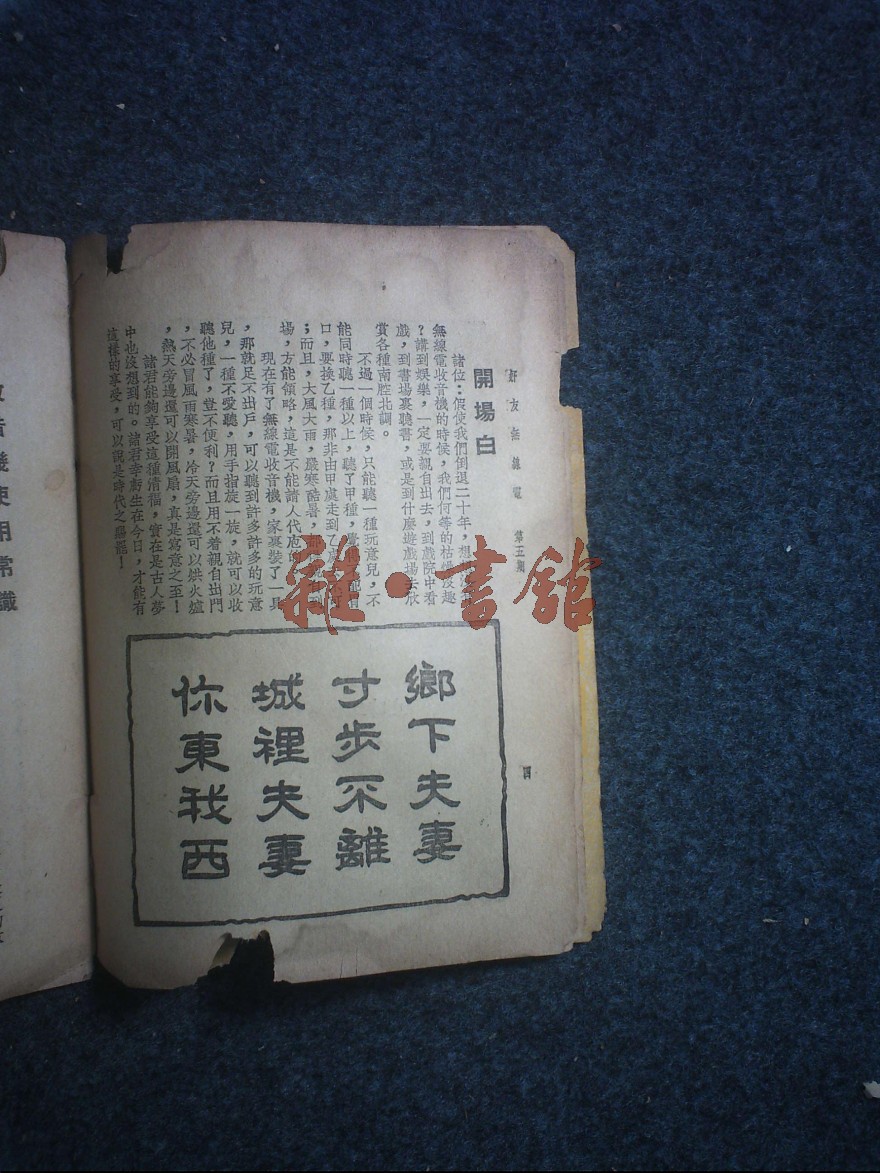 好友無線電　第五期
開場白
諸位：假使我們倒退二十年，想
無線電收音機的時候，我們何等的枯燥沒趣
？講到娛樂，一定要親自出去，到戲院中看
戲，到書場裏聽書，或是到什麼遊戲場去欣
賞各種南腔北調。
不過一個時候，只能聽一種玩意兒，不
能同時聽一種以上，聽了甲種，
口，要換乙種，那非由甲處走到乙處不可
；而且，大風大雨，嚴寒酷暑，
場，方能領略，這是不能請人代庖的
現在有了無線電收音機，家裏裝了一具
，那就足不出戶，可以聽到許多許多的玩意
兒，一種不愛聽，用手指旋一旋，就可以收
聽他種了，豈不便利？而且用不着親自出門
，不必冒風雨寒暑，冷天旁邊還可以烘火爐
，熱天旁邊還可以開風扇，真是寫意之至！
諸君能夠享受這種清福，實在是古人夢
中也沒想到的。諸君幸虧生在今日，才能有
這樣的享受，可以說是時代之驕寵！
鄉下夫妻
寸步不離
城裡夫妻
你東我西
四
音機使用常識
雜·書館